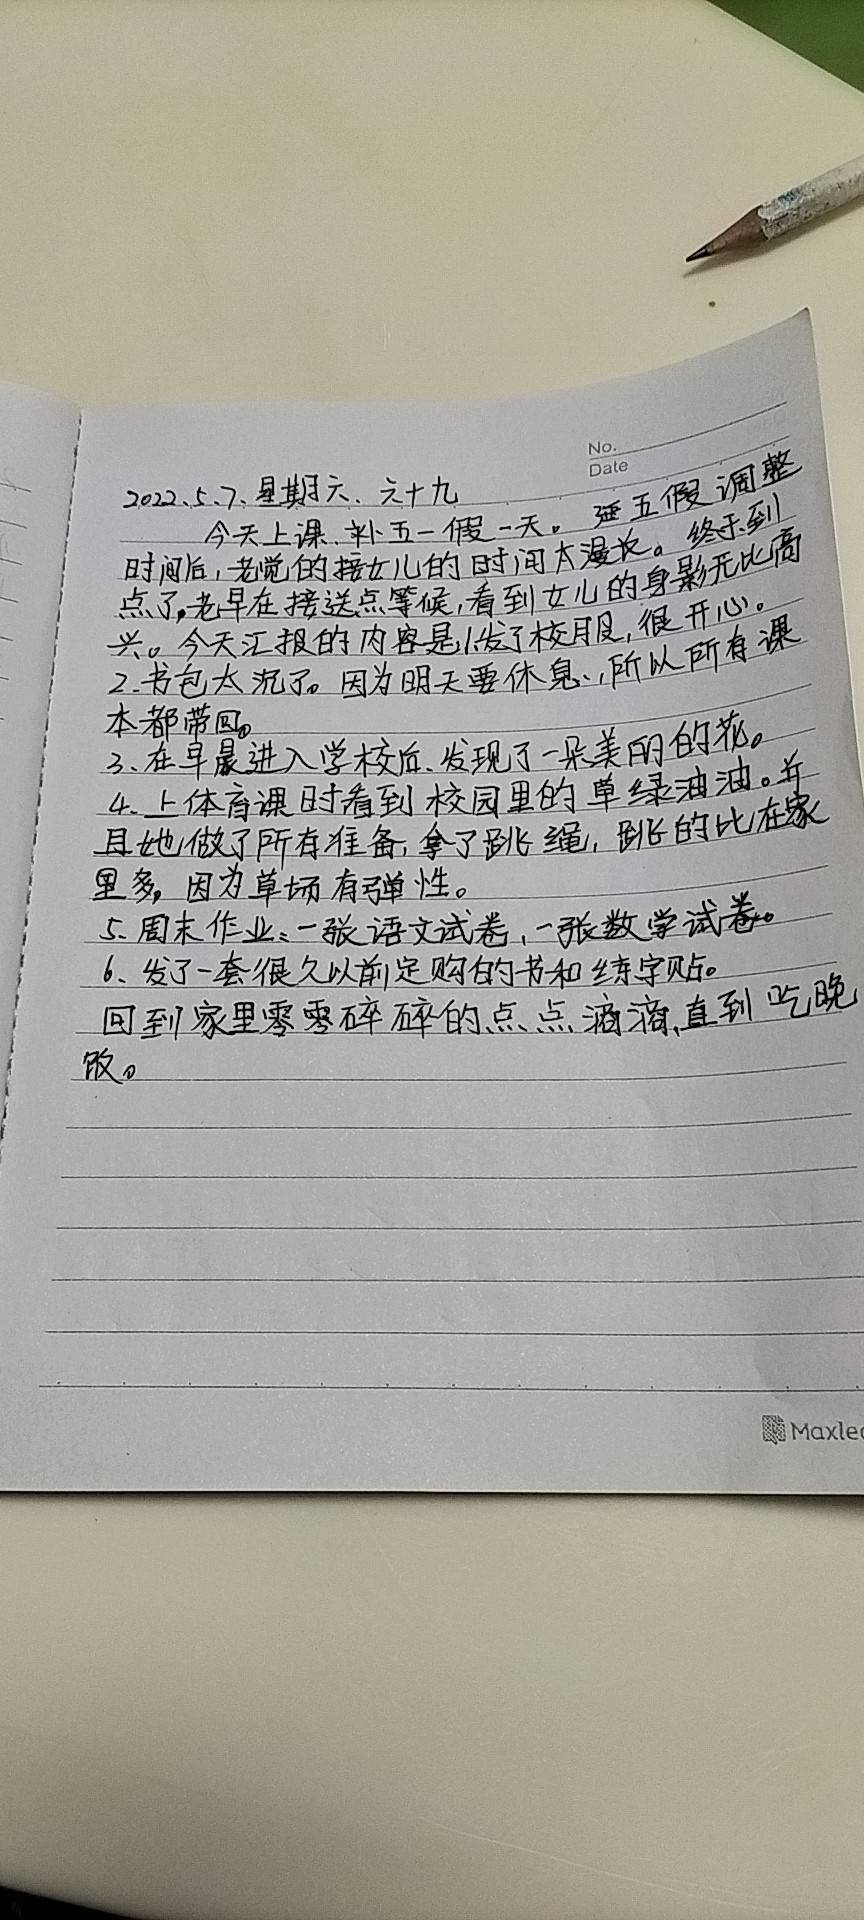 No.
Date
2022.5.7.星期六、六十九
今天上课、补五一假一天。 五假调整
时间后,老觉的接女儿的时间太漫长。终于到
点了,老早在接送点等候,看到女儿的身影无比高
兴。今天汇报的内容是1、发了校服,很开心。
2、书包太沉了。因为明天要休息,所以所有课
本都带回。
3、在早晨进入学校后、发现了一朵美丽的花。
4、上体育课时看到校园里的草绿油油。并
且她做了所有准备,拿了跳绳,跳的比在家
里多,因为草场有弹性。
5、周末作业:一张语文试卷,一张数学试卷。
6、发了一套很久以前定购的书和练字贴。
回到家里零零碎碎的点点滴滴,直到吃晚
饭。